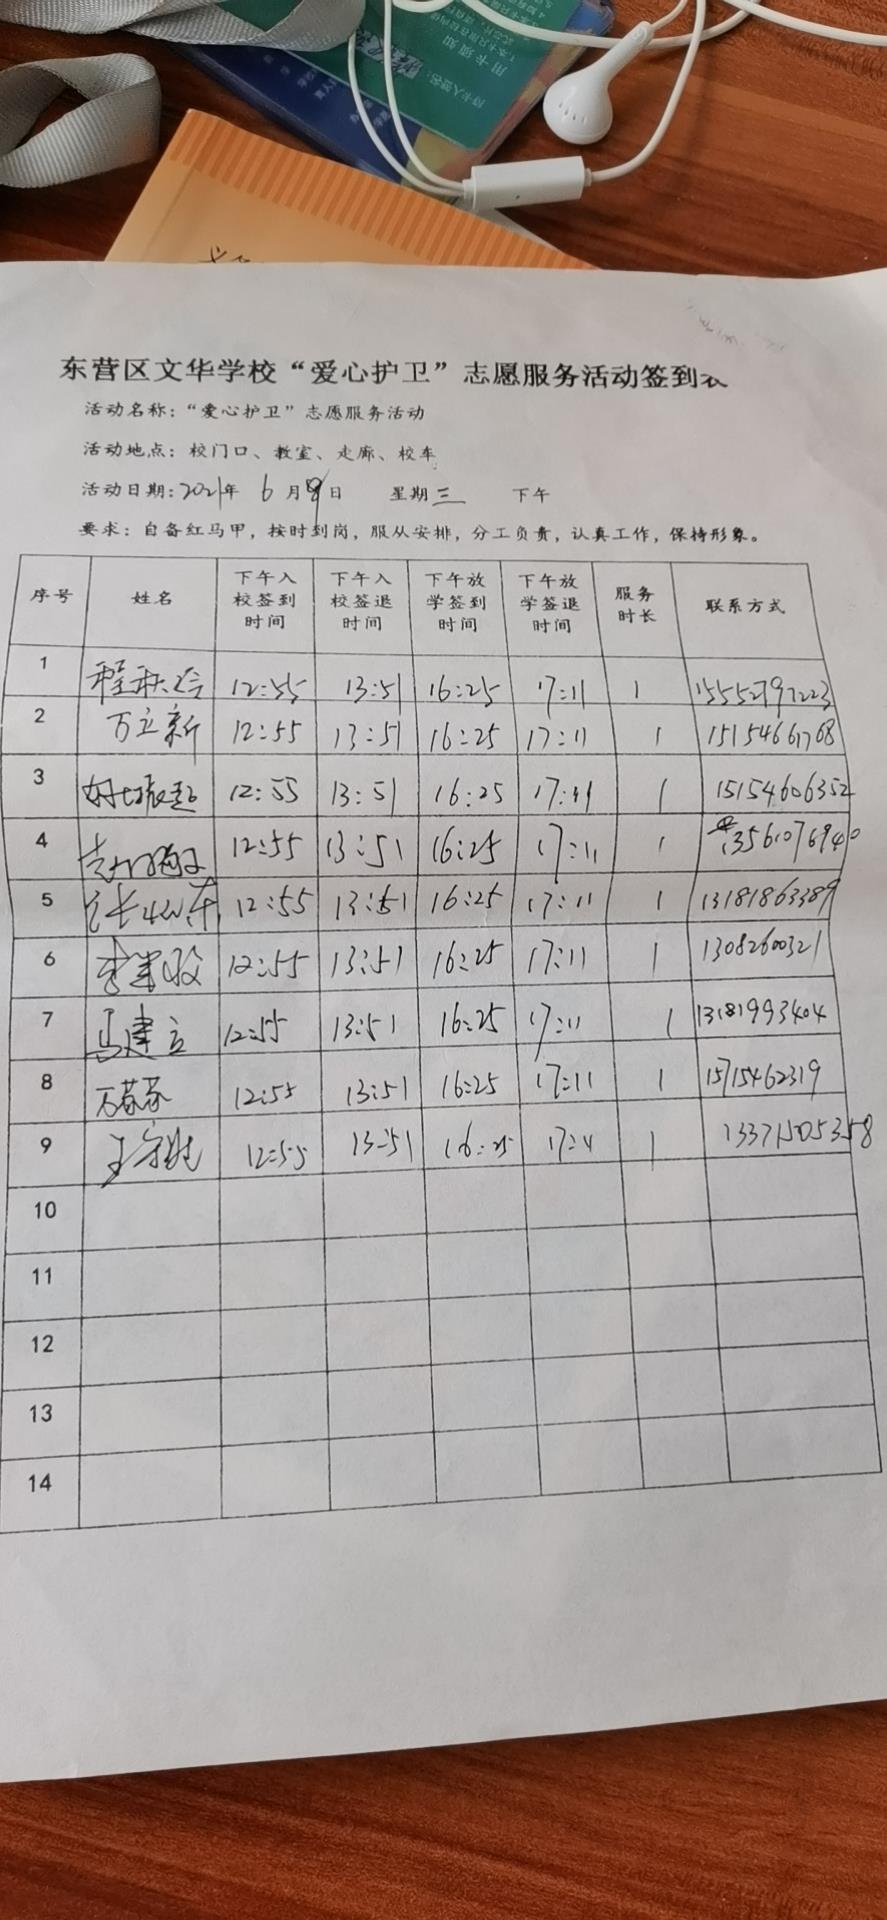 东营区文华学校“爱心护卫”志愿服务活动签到表
活动名称：“爱心护卫”志愿服务活动
活动地点：校门口、教室、走廊、校车
活动日期：2021年 6月9日 星期三 下午
要求：自备红马甲，按时到岗，服从安排，分工负责，认真工作，保持形象。
序号 姓名 下午入校签到时间 下午入校签退时间 下午放学签到时间 下午放学签退时间 服务时长 联系方式
1 12:55 13:51 16:25 17:11 1 15552797223
2 万立新 12:55 13:51 16:25 17:11 1 15154661768
3 12:55 13:51 16:25 17:11 1 15154606352
4 12:55 13:51 16:25 17:11 1 13561076940
5 12:55 13:51 16:25 17:11 1 13181863389
6 12:55 13:51 16:25 17:11 1 1308260321
7 马建立 12:55 13:51 16:25 17:11 1 13181993404
8 12:55 13:51 16:25 17:11 1 15715462319
9 12:55 13:51 16:25 1 13371505358
10
11
12
13
14